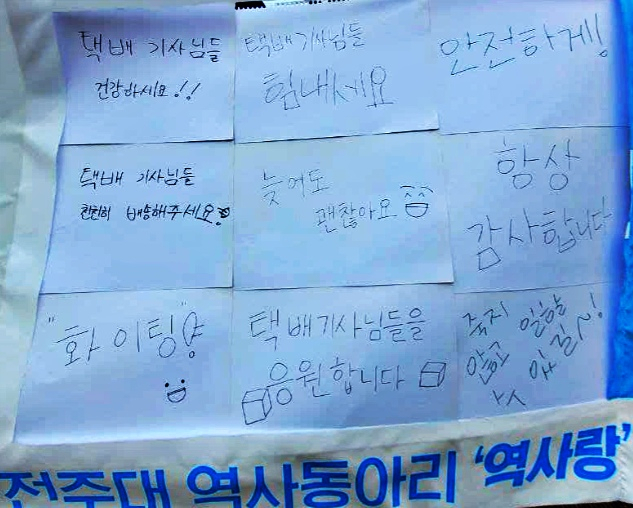 택배 기사님들
건강하세요!!
택배 기사님들
힘내세요
안전하게!
택배 기사님들
천천히 배송해주세요!
늦어도
괜찮아요
항상
감사합니다
"화이팅"
택배기사님들을
응원합니다
죽지
않고
일할
수
있길~!
전주대 역사동아리 '역사랑'